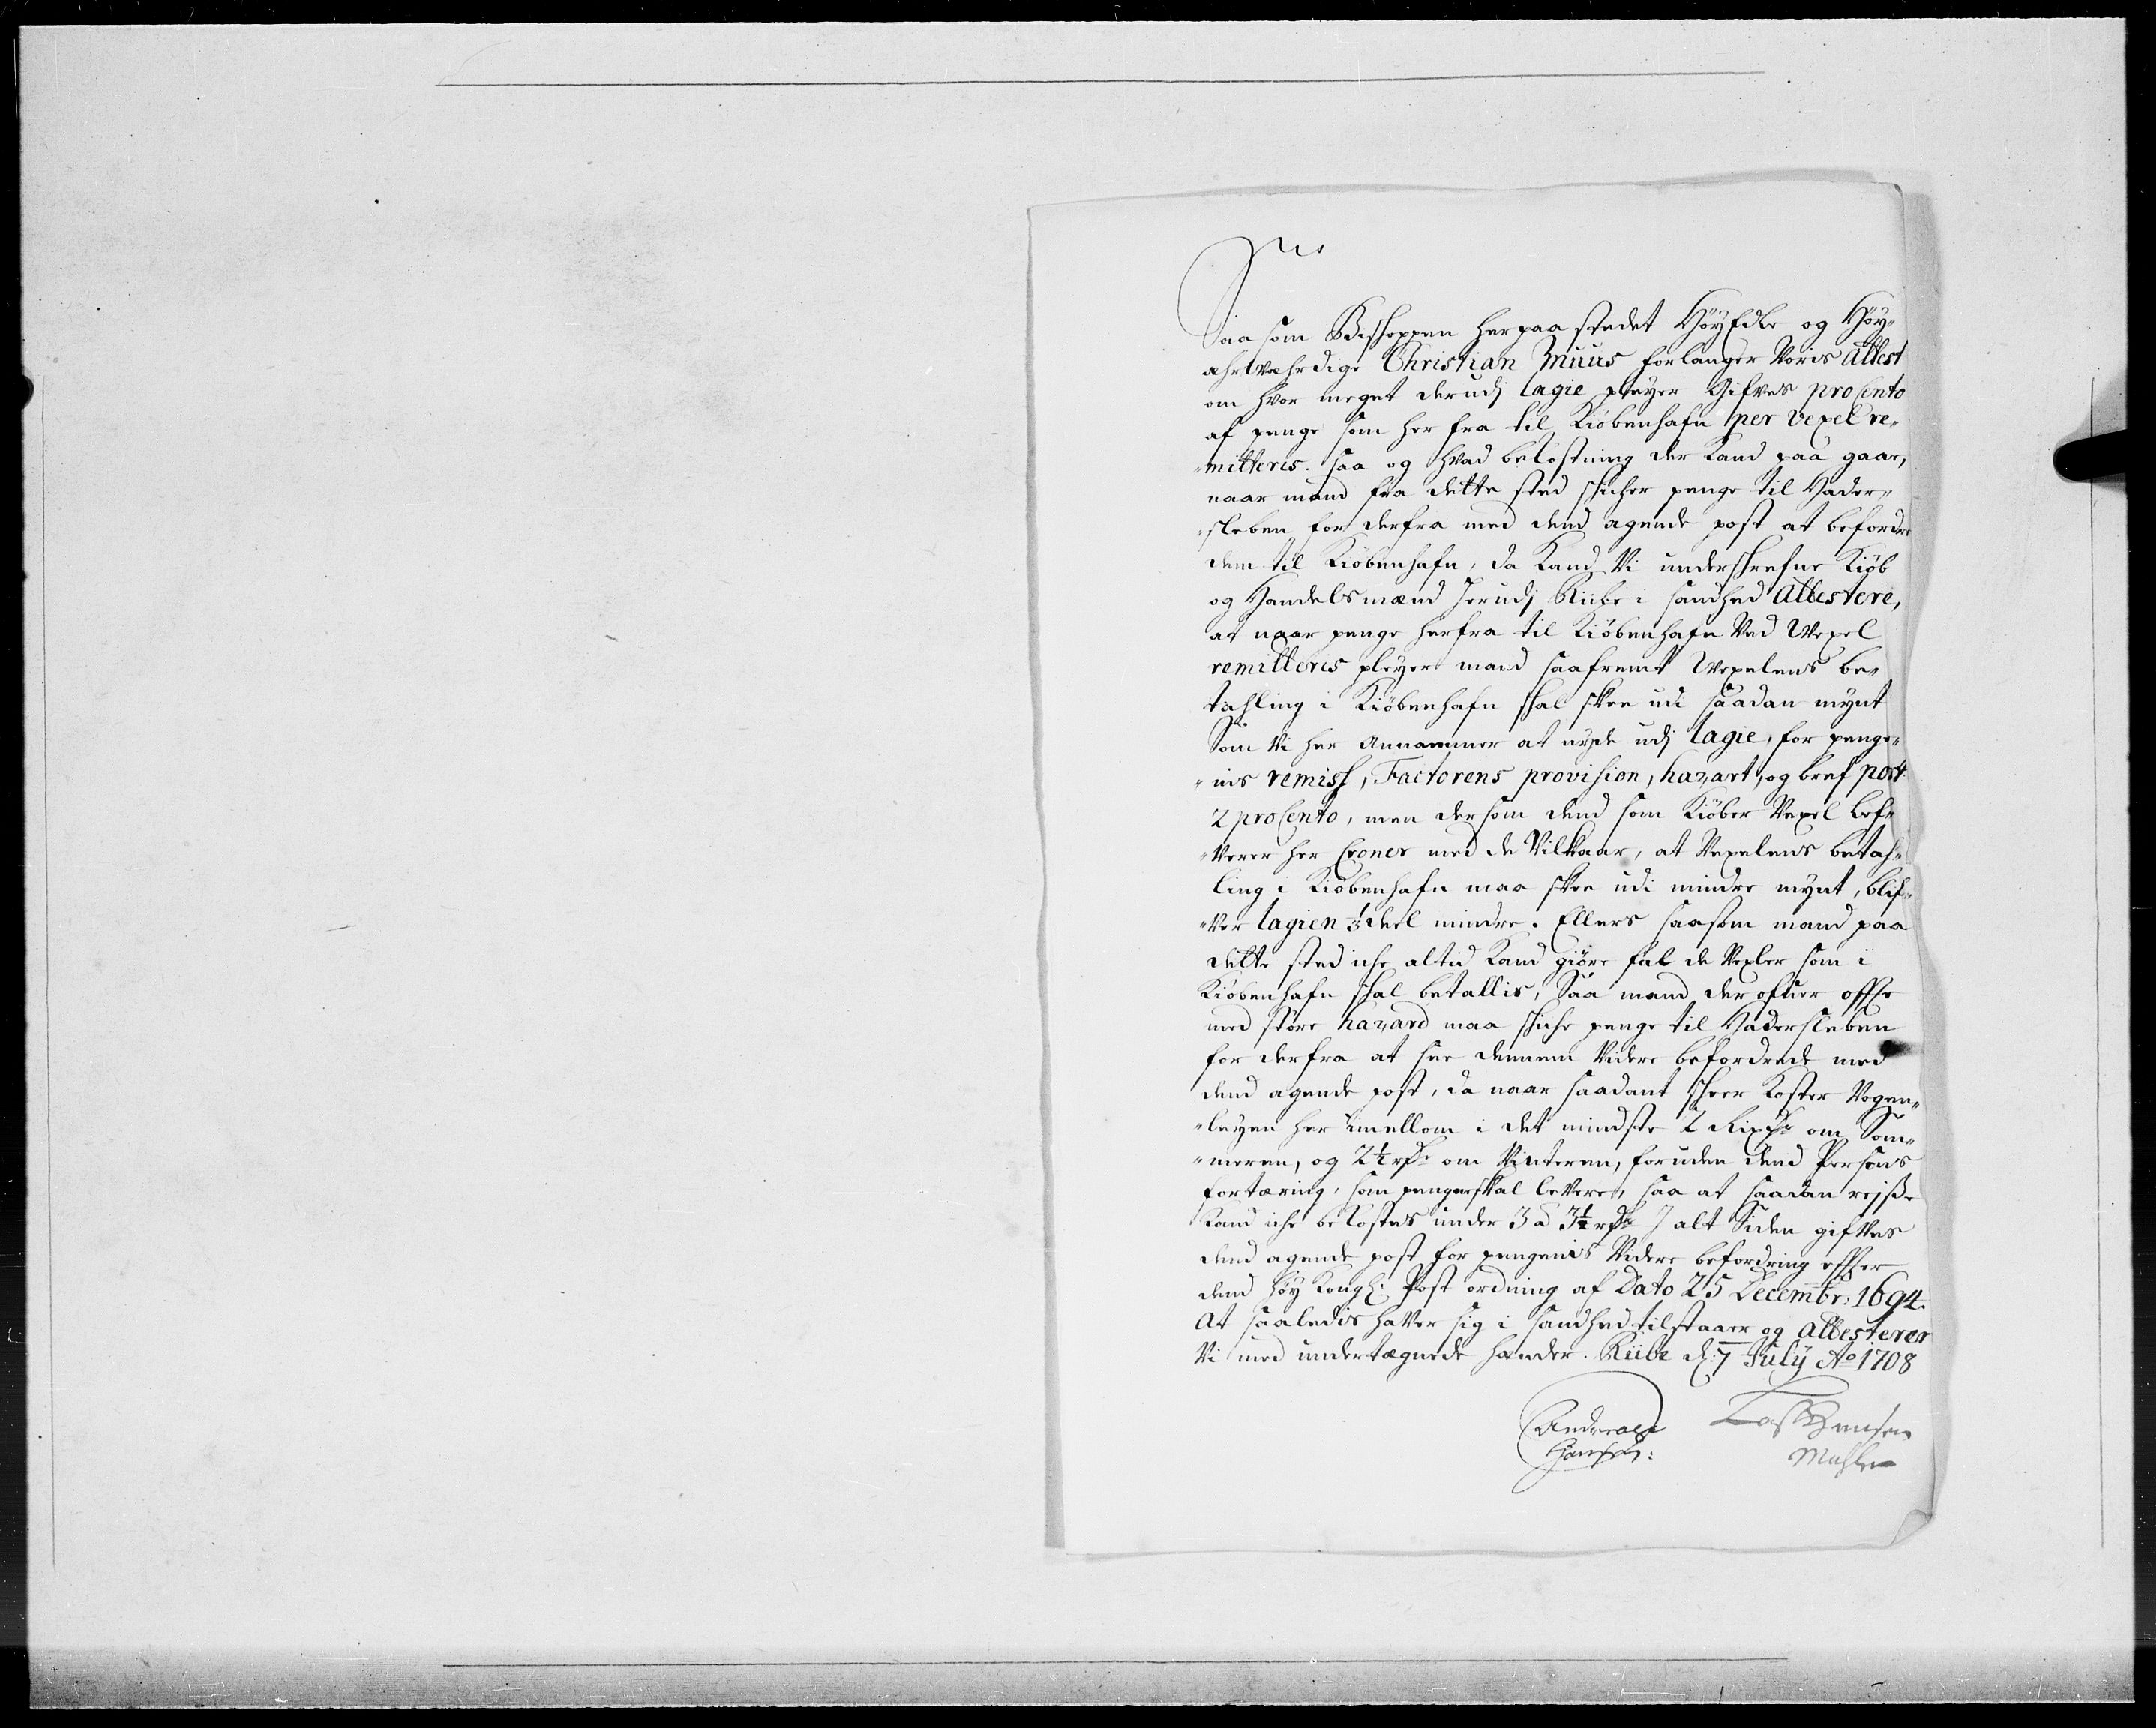 Saa som Bisschoppen her paa stedet HøyEdle og Høy„
ahrværdige Christian Muus forlanger Voris Attest
om hvor meget der udj lagie pleyer Gifves pro Cento
af penge som her fra til Kiöbenhafn per vexel re„
„mitteris. saa og hvad bekostning der kand paa gaar,
naar mand fra dette sted skicher penge til Hader„
„sleben for derfra med dend agende post at befordre
dem til Kiöbenhafn, da kand Vi underschrefne Kiöb
og Handelsmænd her udj Riibe i sandhed Attestere,
at naar penge herfra til Kiöbenhafn Ved Wexel
remitteris pleyer mand saafremt Wexelens be„
tahling i Kiöbenhafn skal skee udi saadan mynt
Som Vi her Annammer at nyde udj lagie, for penge„
„nis remiss, Factorens provision, hazart, og bref post
2 pro Cento, men dersom dend som Kiöber Vexel lef„
„Verer her Croner med de Vilkaar, at Vexelens betah„
ling i Kiöbenhafn maa skee udi mindre mynt, blif„
„Ver lagien ⅓ deel mindre. Ellers saasom mand paa
dette sted iche altid kand giöre fal de Vexler som i
Kiöbenhafn skal betallis, Saa mand der ofuer offte
med störe hazard maa skiche penge til Hadersleben
for derfra at see dennem Videre befordrede med
dend agende post, da naar saadant skeer koster Vogen„
„leyen her imellom i det mindste 2 Rixdr om Som„
„meren, og 2½ rdr om Vinteren, foruden dend Persons
fortæring, som pengene skal levere, saa at saadan rejsse
kand iche bekostes under 3 a 3½ rdr J alt Siden gifves
dend agende post for pengenis Videre befordring effter
dend höy Kongl. Post ordning af Dato 25 Decembr: 1694.
At saaledis haver sig i sandhed tilstaaer og Attesterer
Vi med undertægnede hænder. Riibe d: 7 July Ao 1708
Andreas
Hansen: